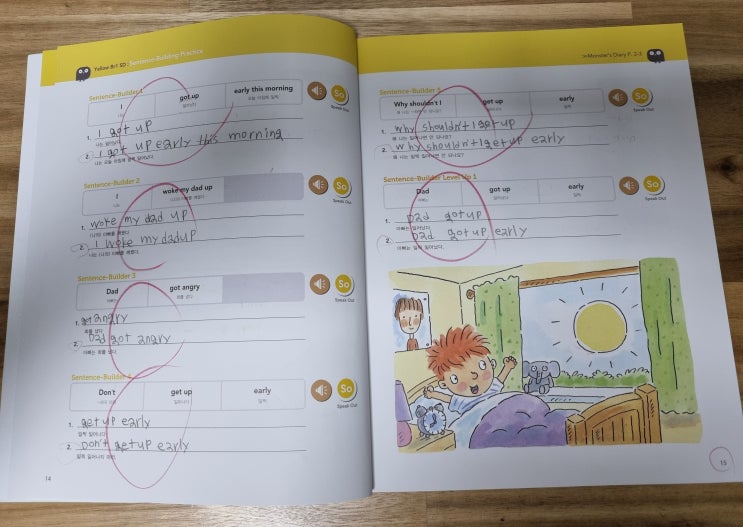 Yellow Br1 5D : Sentence-Building Practice
Sentence-Builder 1
I got up early this morning
나는 일어났다 오늘 아침에 일찍
So
Speak Out
1. I got up
나는 일어났다.
2. I got up early this morning
나는 오늘 아침에 일찍 일어났다.
Sentence-Builder 2
I woke my dad up
나는 (나의) 아빠를 깨웠다
So
Speak Out
1. woke my dad up
(나의) 아빠를 깨웠다.
2. I woke my dad up
나는 (나의) 아빠를 깨웠다.
Sentence-Builder 3
Dad got angry
아빠는 화를 냈다
So
Speak Out
1. got angry
화를 냈다.
2. Dad got angry
아빠는 화를 냈다.
Sentence-Builder 4
Don't get up early
일어나다 일찍
So
Speak Out
1. get up early
일찍 일어나다.
2. Don't get up early
일찍 일어나지 마라.
14
>>Monster's Diary P. 2-3
Sentence-Builder 5
Why shouldn't I get up early
일찍
So
Speak Out
1. why shouldn't I get up
왜 나는 일어나면 안 되나요?
2. why shouldn't I get up early
왜 나는 일찍 일어나면 안 되나요?
Sentence-Builder Level Up 1
Dad got up early
아빠는 일어났다 일찍
So
Speak Out
1. Dad got up
아빠는 일어났다.
2. Dad got up early
아빠는 일찍 일어났다.
15